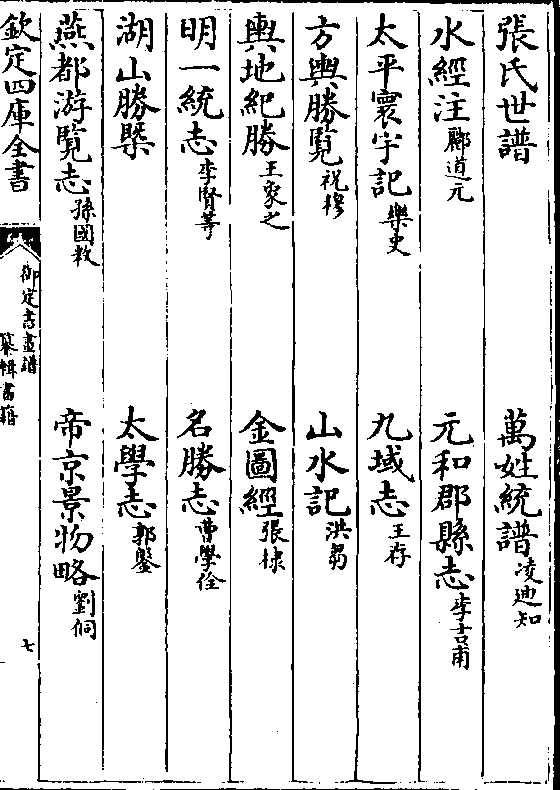 張氏世譜 萬姓統譜凌迪知
水經注酈道元 元和郡縣志李吉甫
太平寰宇記樂史 九域志王存
方輿勝覽祝穆 山水記洪芻
輿地紀勝王象之 金圖經張棣
明一統志李賢等 名勝志曹學佺
湖山勝槩 太學志郭鎜
燕都游覽志孫國敉 帝京景物略劉侗
欽定四庫全書 御定書畫譜 纂輯書籍 七